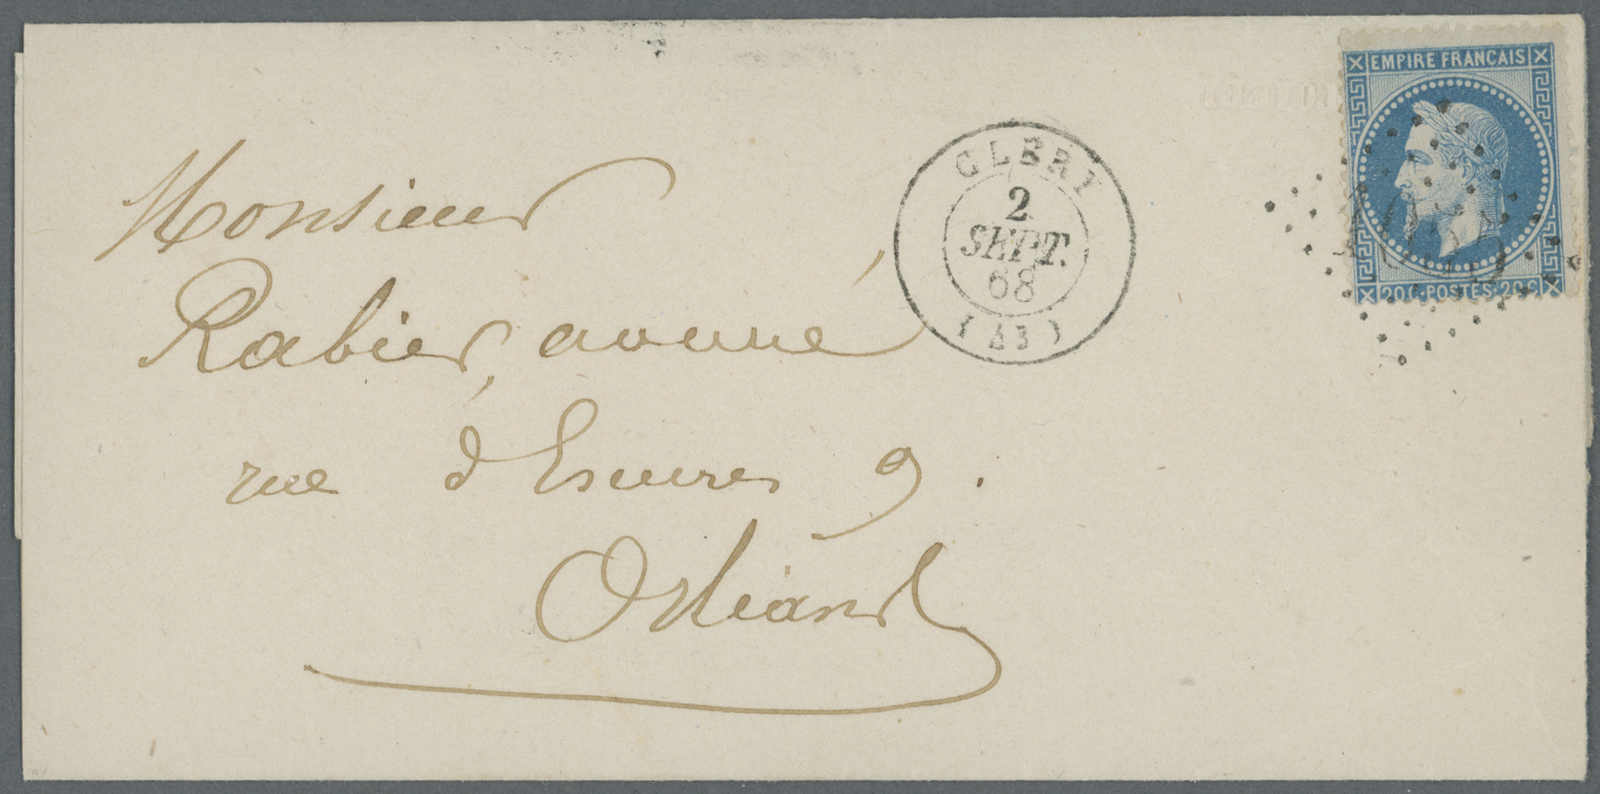 EMPIRE FRANCAIS
20 C. POSTES. 20 C
CLÉRY
2
SEPT.
68
( 43 )
Monsieur
Rabier, avoué
rue d'Escures 9.
Orléans